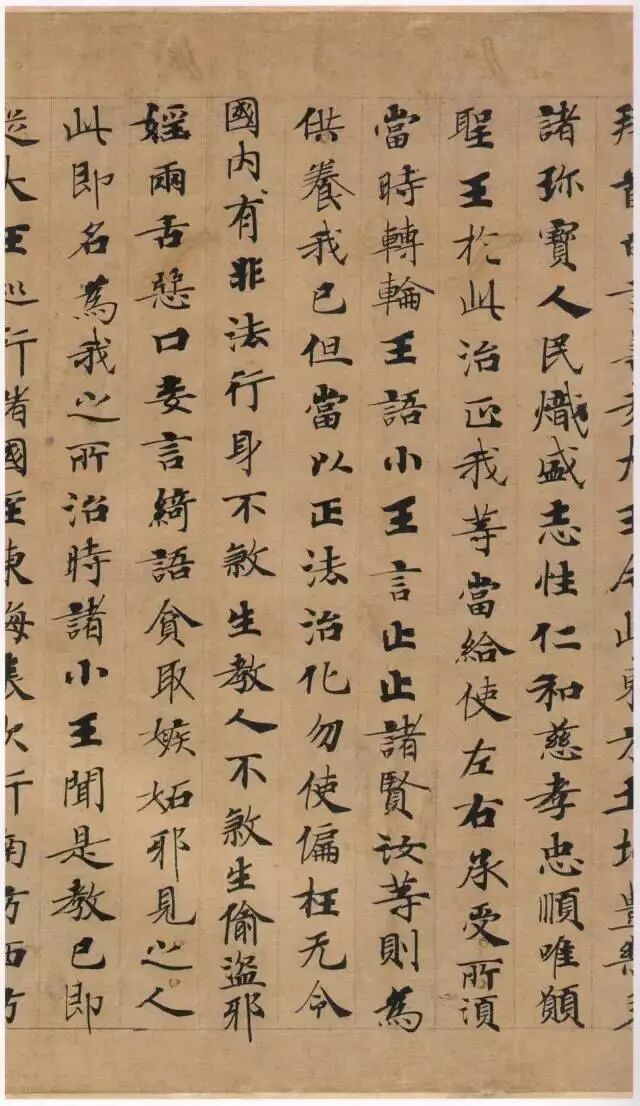 大王今此東方土地豊樂多
諸珎寶人民熾盛志性仁和慈孝忠順唯願
聖王於此治正我等當給使左右承受所湏
當時轉輪王語小王言止止諸賢汝等則為
供養我已但當以正法治化勿使偏枉无令
國內有非法行身不煞生教人不煞生偷盜邪
婬兩舌惡口妄言綺語貪取嫉妬邪見之人
此即名為我之所治時諸小王聞是教已即
從大王巡行諸國至東海表次行南方西方